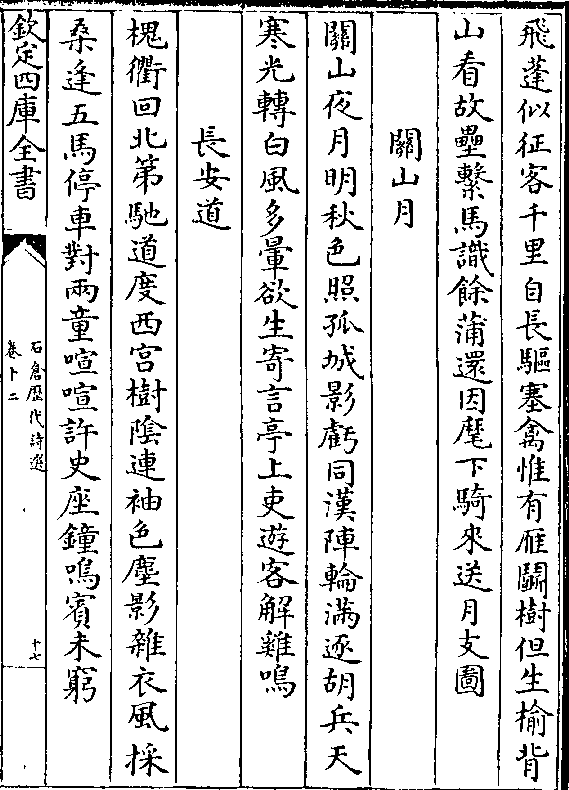 飛蓬似征客千里自長驅塞禽惟有雁關樹但生榆背
山看故壘繫馬識餘蒲還因麾下騎來送月支圖
關山月
關山夜月明秋色照孤城影虧同漢陣輪滿逐胡兵天
寒光轉白風多暈欲生寄言亭上吏遊客解雞鳴
長安道
槐衢回北第馳道度西宮樹陰連袖色塵影雜衣風採
桑逢五馬停車對兩童喧喧許史座鐘鳴賓未窮
欽定四庫全書
石倉歷代詩選
卷十二
十七